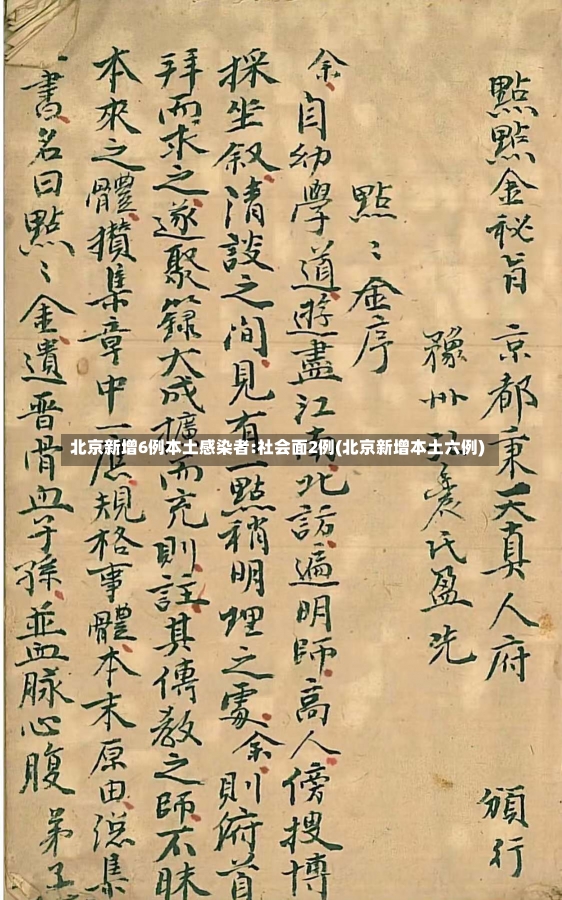 點點金秘旨 京都秉天真人府 頒行
豫州 氏盈洗
點〻金序
余自幼學道遊盡江南北訪遍明師高人傍搜博
採坐叙清談之间見有一點稍明理之處余則俯首
拜而求之遂聚錄大成擴而充則註其傳教之師不昧
本來之體攢集章中一應規格事體本末原由總集
書名曰點〻金遺晋骨血子孫並血脉心腹 弟子
北京新增6例本土感染者:社会面2例(北京新增本土六例)